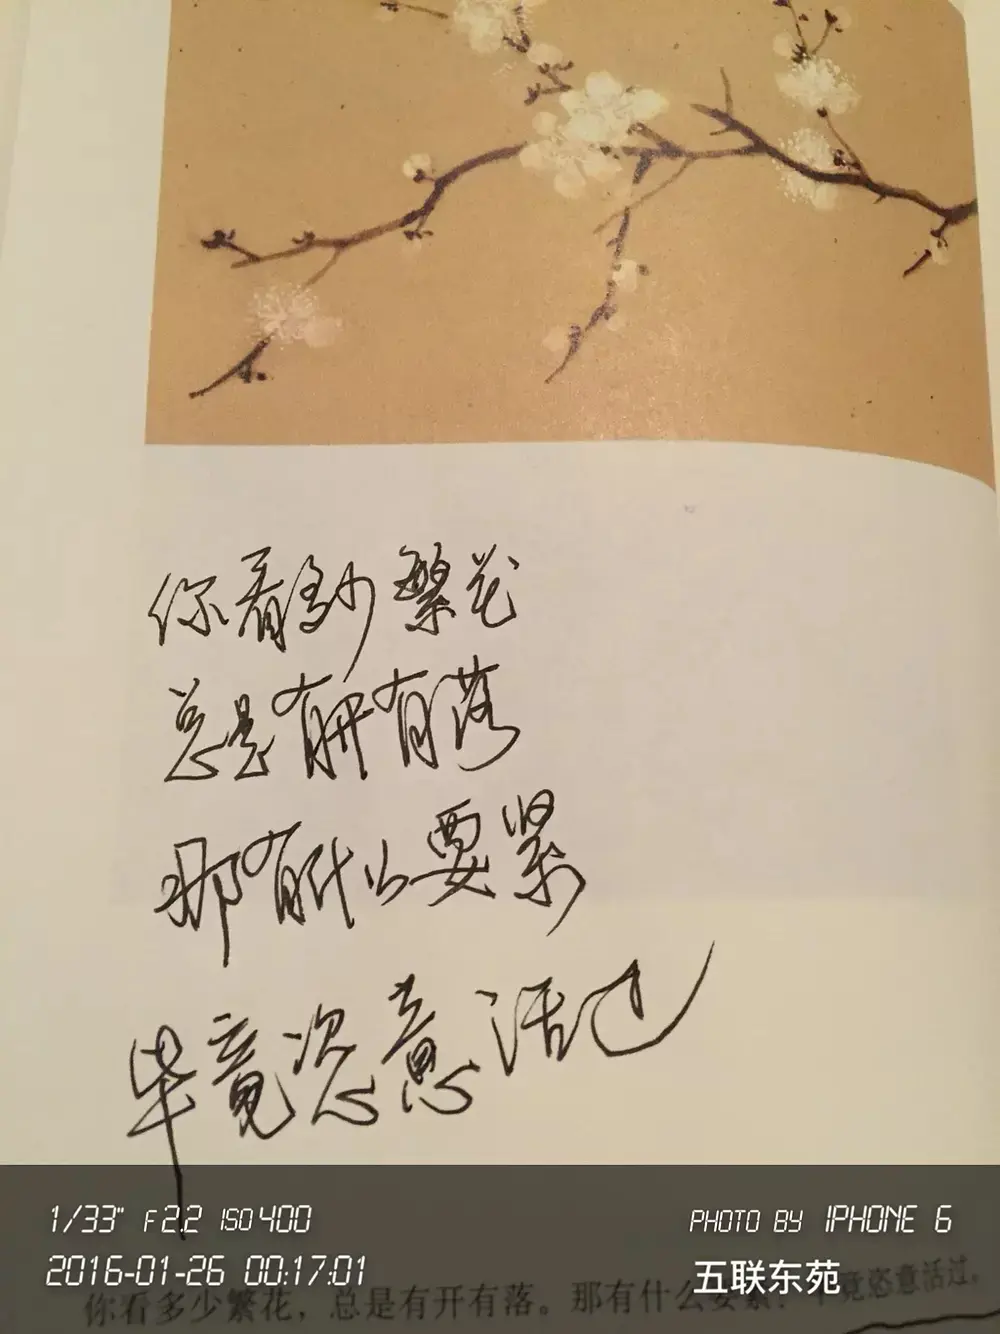 你看多少繁花
总是有开有落
那有什么要紧
毕竟恣意活过
1/33" F2.2 ISO400
PHOTO BY IPHONE 6
2016-01-26 00:17:01
五联东苑
你看多少繁花，总是有开有落。那有什么要紧？毕竟恣意活过，